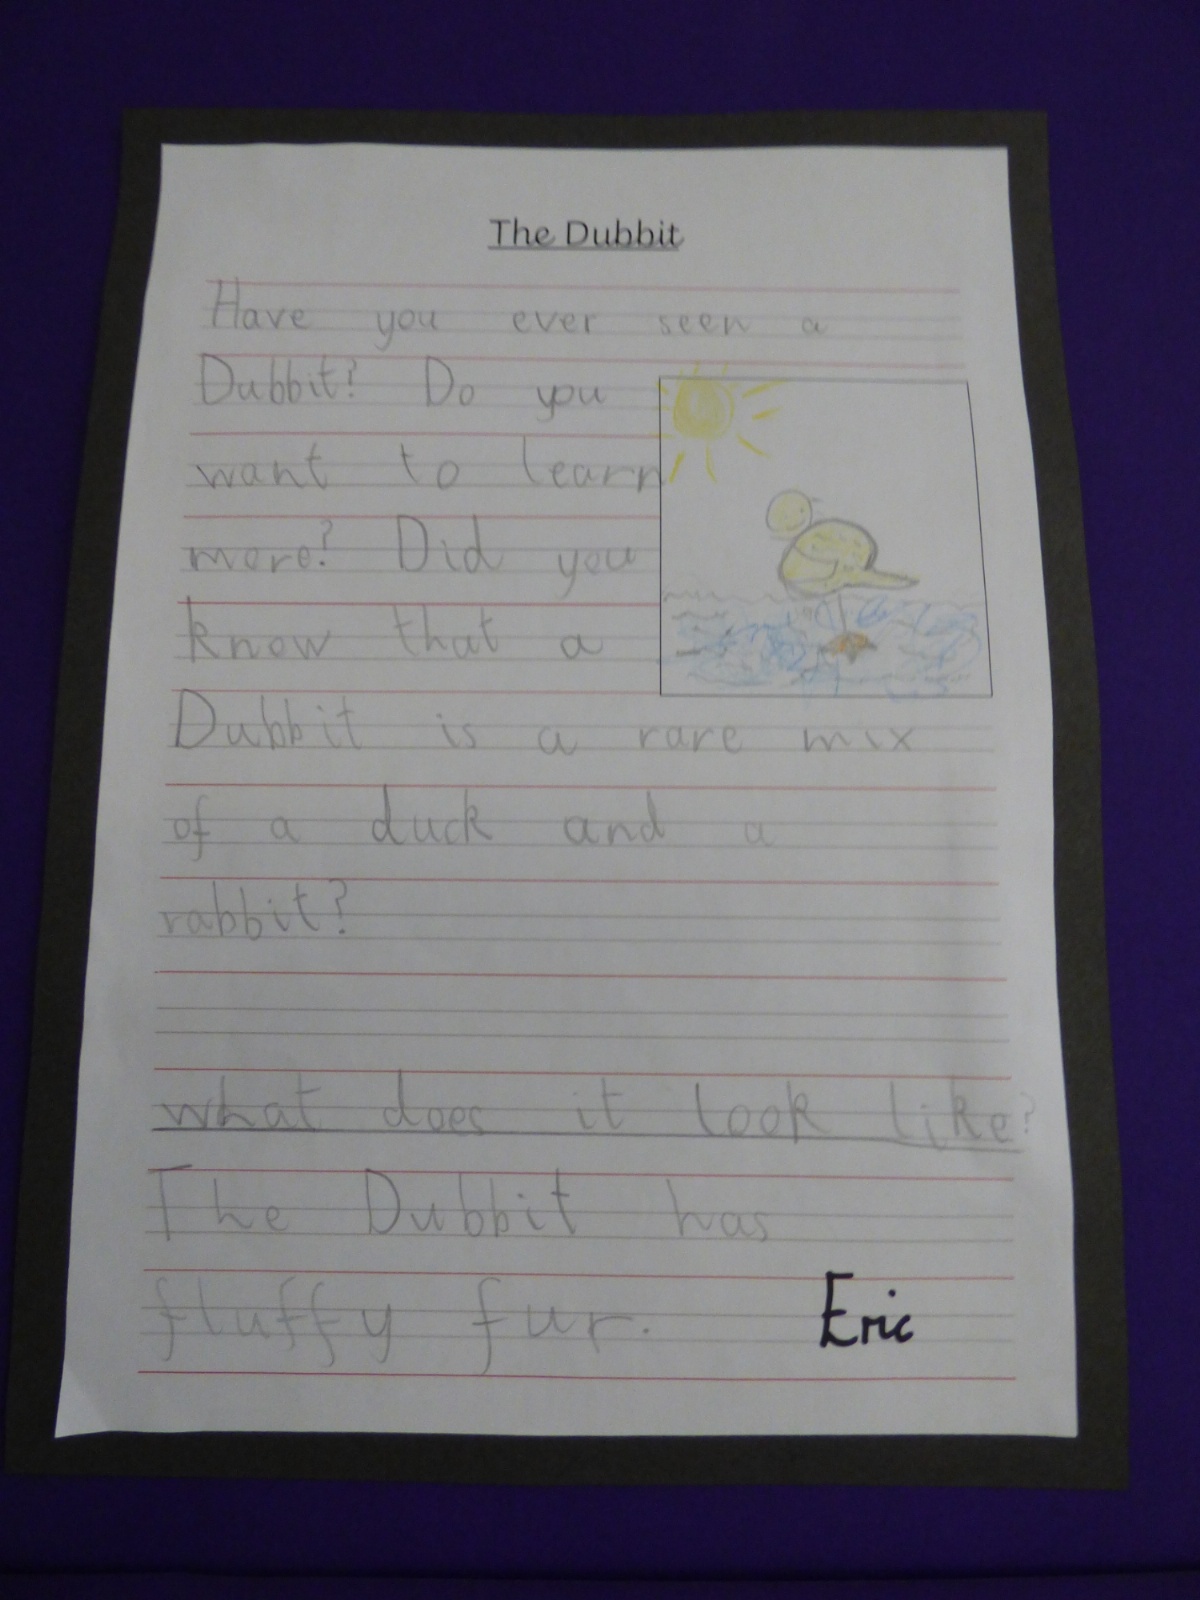 The Dubbit
Have you ever seen a
Dubbit? Do you
want to learn
more? Did you
know that a
Dubbit is a rare mix
of a duck and a
rabbit?
what does it look like?
The Dubbit has
fluffy fur.
Eric